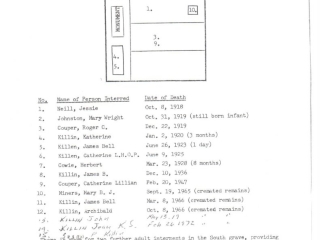 MONUMENT
1.
10.
3.
9.
4.
5.
No. Name of Person Interred Date of Death
1. Neill, Jessie Oct. 8, 1918
2. Johnston, Mary Wright Oct. 31, 1919 (still born infant)
3. Couper, Roger C. Dec. 20, 1919
4. Killin, Katherine Jan. 2, 1920 (3 months)
5. Killen, James Bell June 26, 1923 (1 day)
6. Killen, Catherine L.H.O.P. June 9, 1925
7. Cowie, Herbert Mar. 23, 1928 (8 months)
8. Killin, James N. Dec. 10, 1936
9. Couper, Catherine Lillian Feb. 20, 1947
10. Miners, Mary B. J. Sept. 19, 1965 (cremated remains)
11. Killin, James Bell Mar. 8, 1966 (cremated remains)
12. Killin, Archibald Oct. 8, 1966 (cremated remains)
Killin John
Killin Jean K.S. Feb 26 1972
for two further adult interments in the South grave, providing